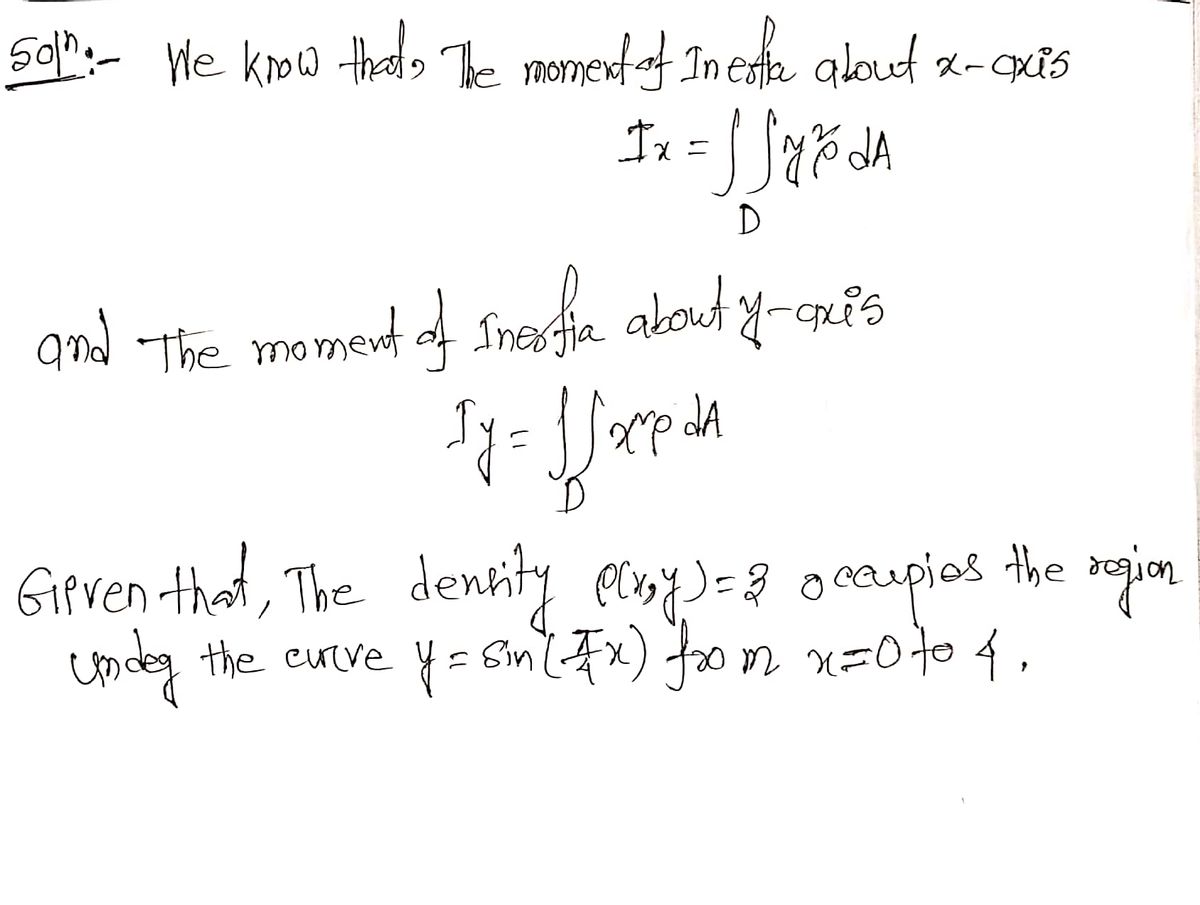 Soln:- We know that, The moment of Inertia about x-axis
Ix = ∫∫ y²ρ dA
D
and The moment of Inertia about y-axis
Iy = ∫∫ x²ρ dA
D
Given that, The density ρ(x,y)=3 occupies the region
under the curve y = sin(π/4 x) from x=0 to 4.